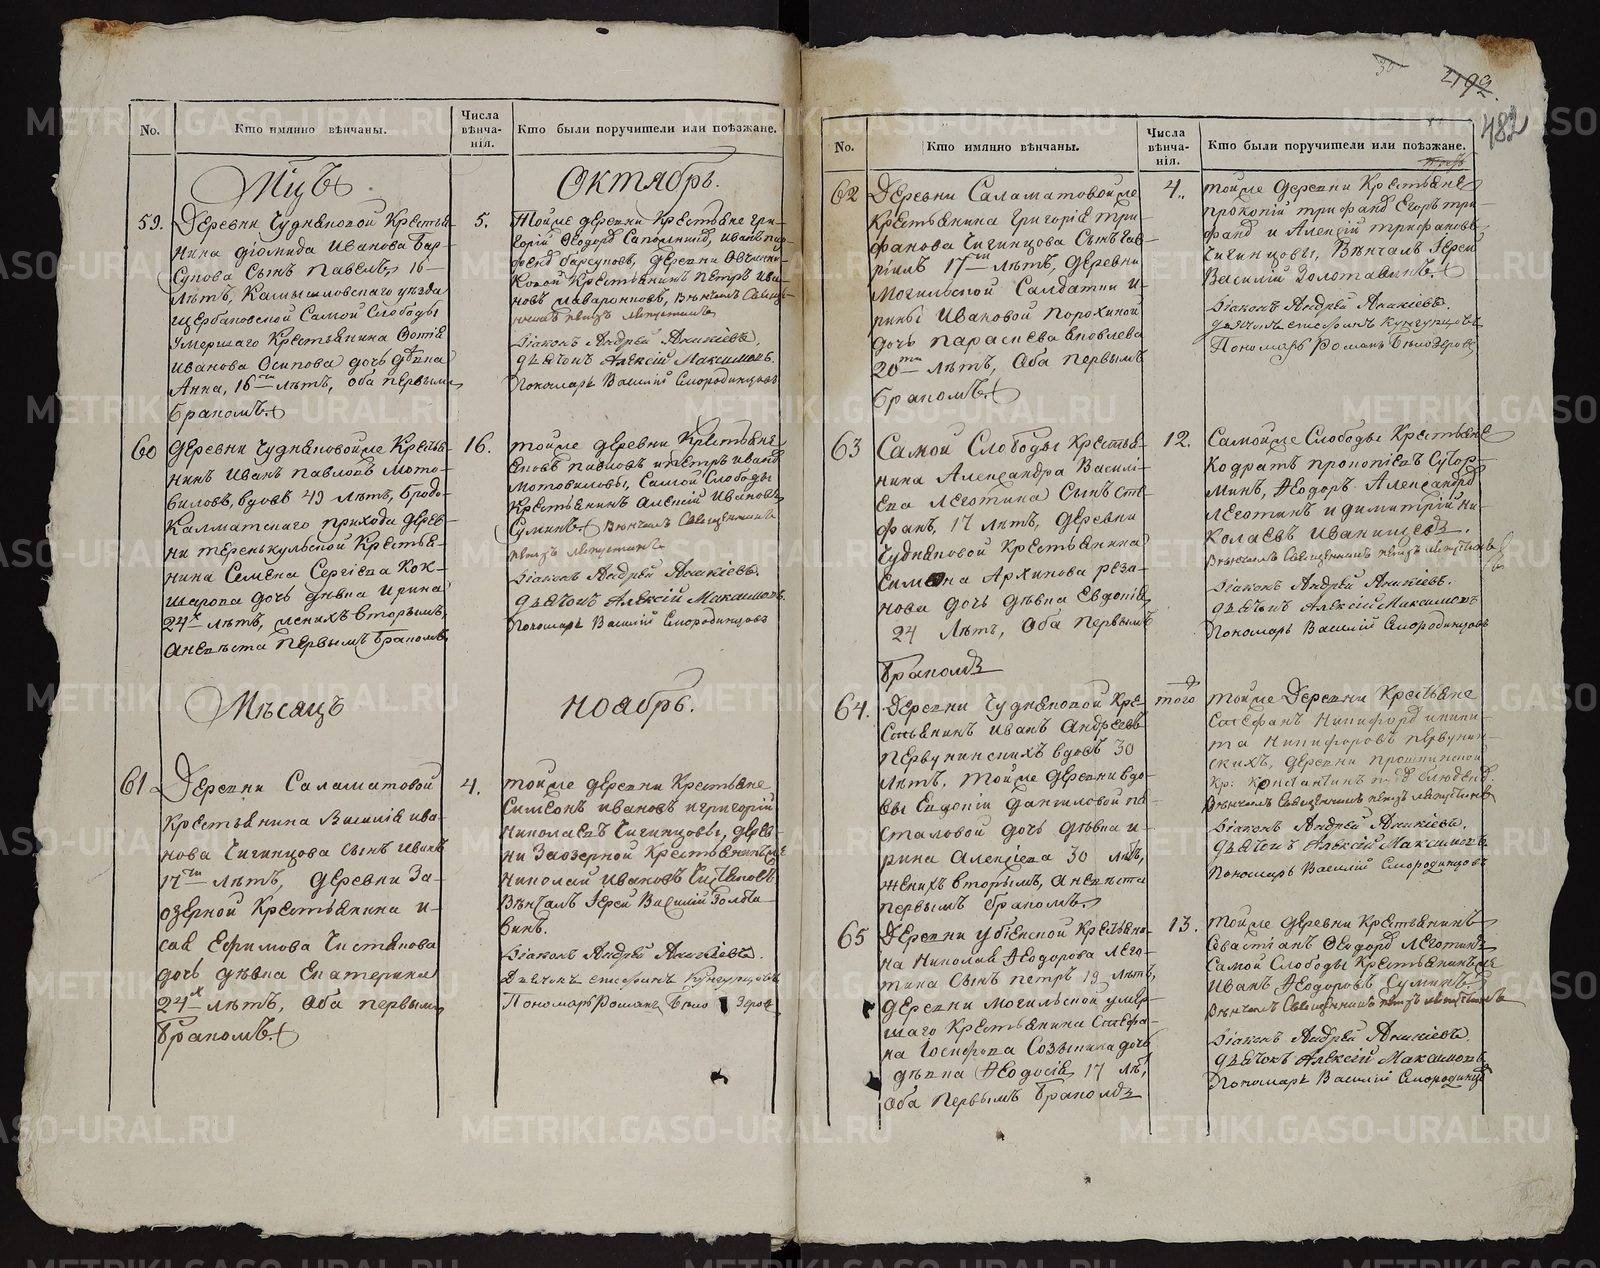 No.
Кто имянно вѣнчаны.
Числа вѣнча-нія.
Кто были поручители или поѣзжане.
Мїцъ
Октябрь.
59.
Деревни Чудиновой Крестья-
нина Діомида Иванова Бар-
сукова Сынъ Павелъ 16
лѣтъ, Камышловскаго уѣзда
Щербаковской Самой Слободы
Умершаго Крестьянина Фотіе
Иванова Осипова дочь дѣвка
Анна, 16 лѣтъ, оба первымъ
бракомъ.
5.
Тойже деревни Крестьяне Гри-
горій Ѳеодоровъ Иванъ
Барсуковъ, деревни
Крестьянинъ Петръ Ива-
новъ Вѣнчалъ
Діаконъ Андрей Аникіевъ.
Дьячокъ Алексій Максимовъ.
Пономарь Василій Смородинцовъ
60
Деревни Чудиновойже Крестья-
нинъ Иванъ Павловъ Мото-
виловъ, вдовъ 49 лѣтъ, Бродо-
Калматскаго прихода дерев-
ни Теренькульской Крестья-
нина Семена Сергіева Кок-
шарова дочь дѣвка Ирина
24 лѣтъ, женихъ вторымъ,
а невѣста первымъ бракомъ.
16.
Тойже деревни Крестьяне
Павловъ и Петръ Ивановъ
Мотовиловы, Самой Слободы
Крестьянинъ Алексій Ивановъ
Суминъ Вѣнчалъ Священникъ
Діаконъ Андрей Аникіевъ.
Дьячокъ Алексій Максимовъ
Пономарь Василій Смородинцовъ
Мѣсяцъ
Ноябрь.
61
Деревни Саламатовой
Крестьянина Василія Ива-
нова Чигинцова сынъ Иванъ
17 лѣтъ, деревни За-
озерной Крестьянина И-
сая Ефимова Чистякова
дочь дѣвка Екатерина
24 лѣтъ, оба первымъ
бракомъ.
4.
Тойже деревни Крестьяне
Симеонъ Ивановъ и Григорій
Николаевъ Чигинцовы, дерев-
ни Заозерной Крестьянинъ
Николай Ивановъ Чистяковъ
Вѣнчалъ Іерей Василій Золота-
винъ.
Діаконъ Андрей Аникіевъ.
Дьячокъ Кунгурцовъ
Пономарь Романъ Бѣлозеровъ
No.
Кто имянно вѣнчаны.
Числа вѣнча-нія.
Кто были поручители или поѣзжане.
482
62
Деревни Саламатовойже
Крестьянина Григорія Три-
фанова Чигинцова Сынъ Гав-
ріилъ 17 лѣтъ, деревни
Могильской Салдатки И-
рины Ивановой Порохиной
дочь Параскева Яковлева
20 лѣтъ, оба первымъ
бракомъ.
4.
Тойже деревни Крестьяне
Прокопій Трифановъ Егоръ Три-
фановъ и Алексій Трифановъ
Чигинцовы, Вѣнчалъ Іерей
Василій Золотавинъ.
Діаконъ Андрей Аникіевъ.
Дьячокъ Кунгурцовъ
Пономарь Романъ Бѣлозеровъ
63
Самой Слободы Крестья-
нина Александра Василь-
ева Леготина Сынъ Сте-
фанъ, 17 лѣтъ, деревни
Чудиновой Крестьянина
Симеона Архипова Реза-
нова дочь дѣвка Евдокія
24 лѣтъ, оба первымъ
бракомъ
12.
Самойже Слободы Крестьяне
Кодратъ Прокопіевъ
Ѳеодоръ Александровъ
Леготинъ и Димитрій Ни-
колаевъ Иванищевъ.
Вѣнчалъ Священникъ
Діаконъ Андрей Аникіевъ.
Дьячокъ Алексій Максимовъ
Пономарь Василій Смородинцовъ
64.
Деревни Чудиновой Кре-
стьянинъ Иванъ Андреевъ
Первунинскихъ вдовъ 30
лѣтъ, Тойже деревни вдо-
вы Евдокіи Даниловой Па-
сталовой дочь дѣвка И-
рина Алексіева 30 лѣтъ,
женихъ вторымъ, а невѣста
первымъ бракомъ.
того
Тойже Деревни Крестьяне
Стефанъ Никифоровъ и Ники-
та Никифоровъ Первунин-
скихъ, деревни
Кр: Константинъ
Вѣнчалъ Священникъ
Діаконъ Андрей Аникіевъ.
Дьячокъ Алексій Максимовъ
Пономарь Василій Смородинцовъ
65
Деревни Убіенской Крестьяни-
на Николая Ѳеодорова Лего-
тина Сынъ Петръ 19 лѣтъ,
Деревни Могильской умер-
шаго Крестьянина Стефа-
на Іосифова Созыкина дочь
дѣвка Ѳеодосія 17 лѣтъ,
оба первымъ бракомъ
13.
Тойже деревни Крестьянинъ
Севастіанъ Ѳеодоровъ Леготинъ
Самой Слободы Крестьянинъ
Иванъ Ѳеодоровъ Суминъ
Вѣнчалъ Священникъ
Діаконъ Андрей Аникіевъ.
Дьячокъ Алексій Максимовъ
Пономарь Василій Смородинцовъ
METRIKI.GASO-URAL.RU